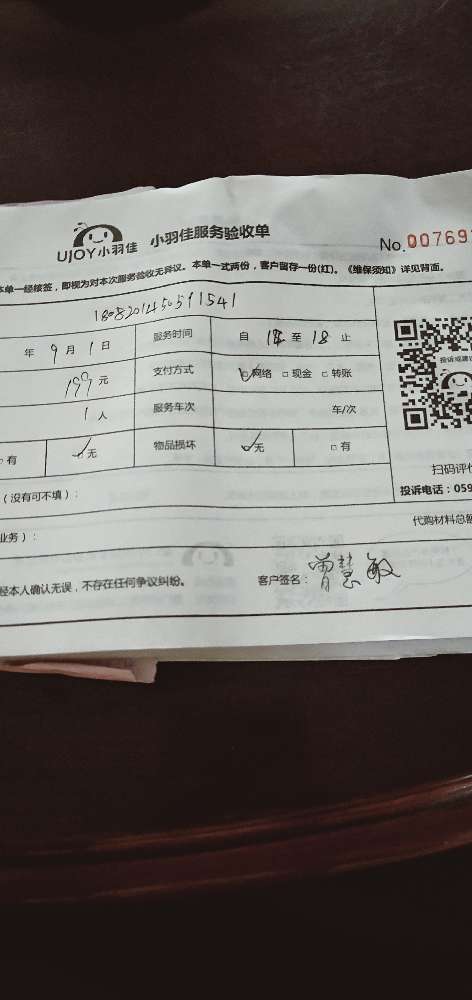 UJOY小羽佳 小羽佳服务验收单
No.00769
本单一经核签，即视为对本次服务验收无异议。本单一式两份，客户留存一份(红)。《维保须知》详见背面。
年 9 月 1 日 服务时间 自 至 18 止
199 元 支付方式 网络 □ 现金 □ 转账
1 人 服务车次 车/次
□ 有 无 物品损坏 无 □ 有
投诉或建
扫码评价
投诉电话：059
（没有可不填）：
代购材料总额
业务）：
经本人确认无误，不存在任何争议纠纷。 客户签名：曾慧敏